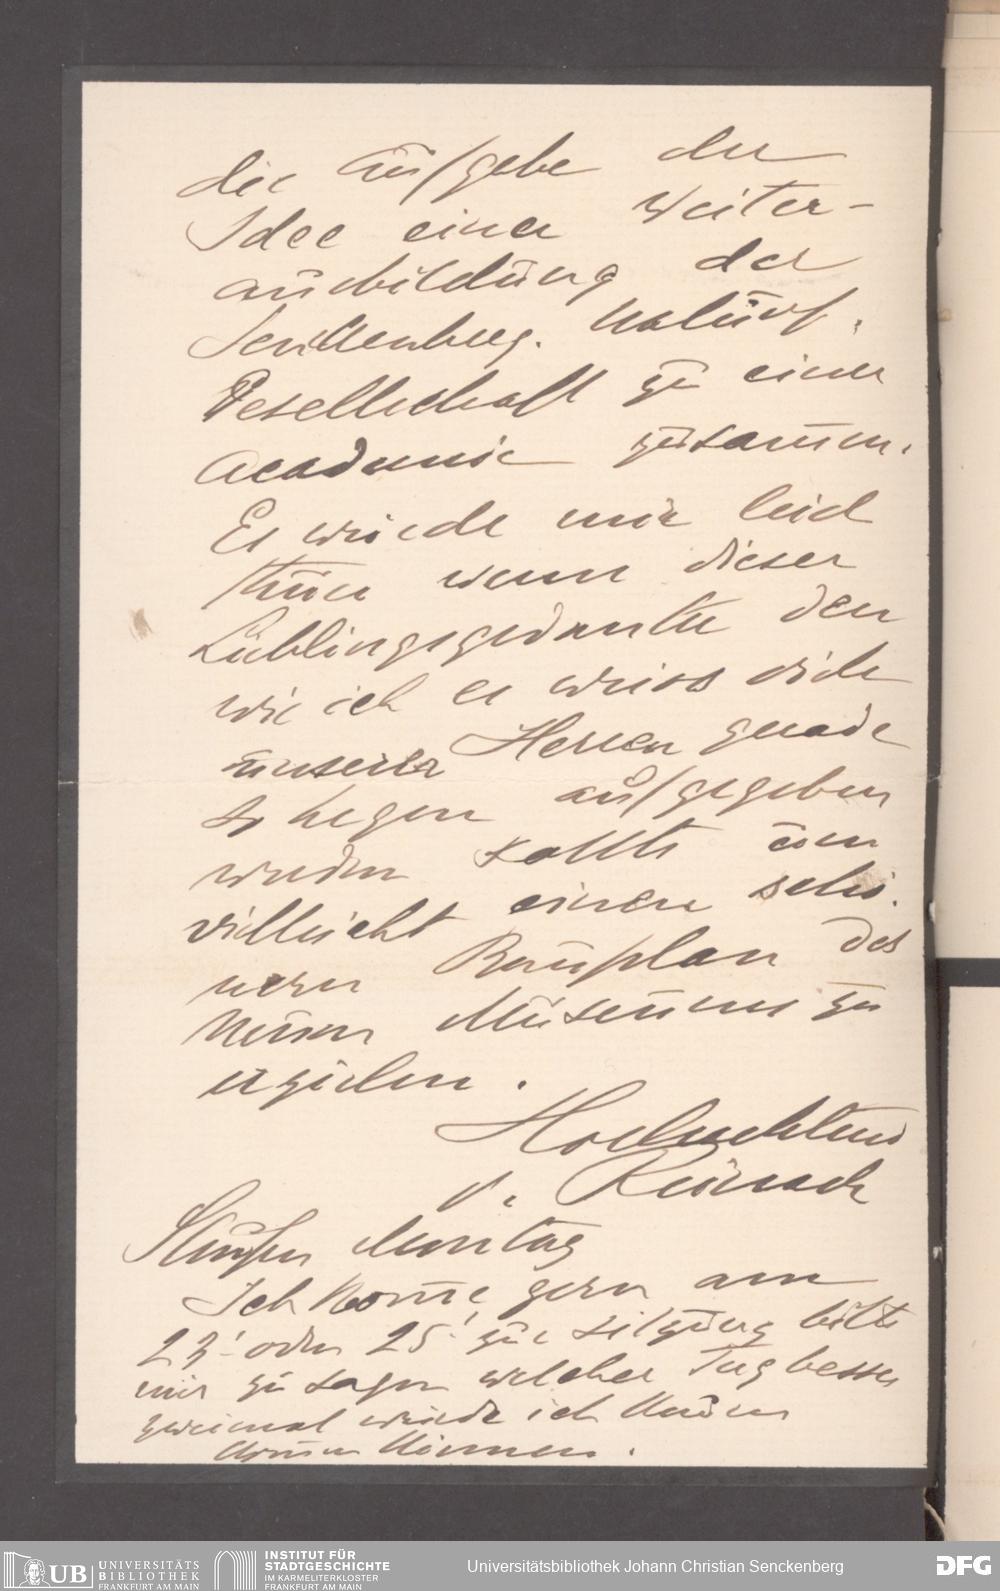 die Aufgebe der
Idee einer Weiter-
ausbildung der
Senckenberg. Naturf.
Gesellschaft zu einer
Academie zusamm.
Es würde mir leid
thun wenn dieser
Lieblingsgedanke den
wie ich es weiss viele
unserer Herren gerade
so hegen aufgegeben
werden sollte um
vielleicht einen schö.
neren Bauplan des
neuen Museums zu
erzielen.
Hochachtend
v. Reinach
Montag
Ich kome gern am
23! oder 25! zur Sitzung bitte
mir zu sagen welcher Tag besser
zweimal würde ich kaum
komen können.
UB UNIVERSITÄTS
BIBLIOTHEK
FRANKFURT AM MAIN
INSTITUT FÜR
STADTGESCHICHTE
IM KARMELITERKLOSTER
FRANKFURT AM MAIN
Universitätsbibliothek Johann Christian Senckenberg
DFG